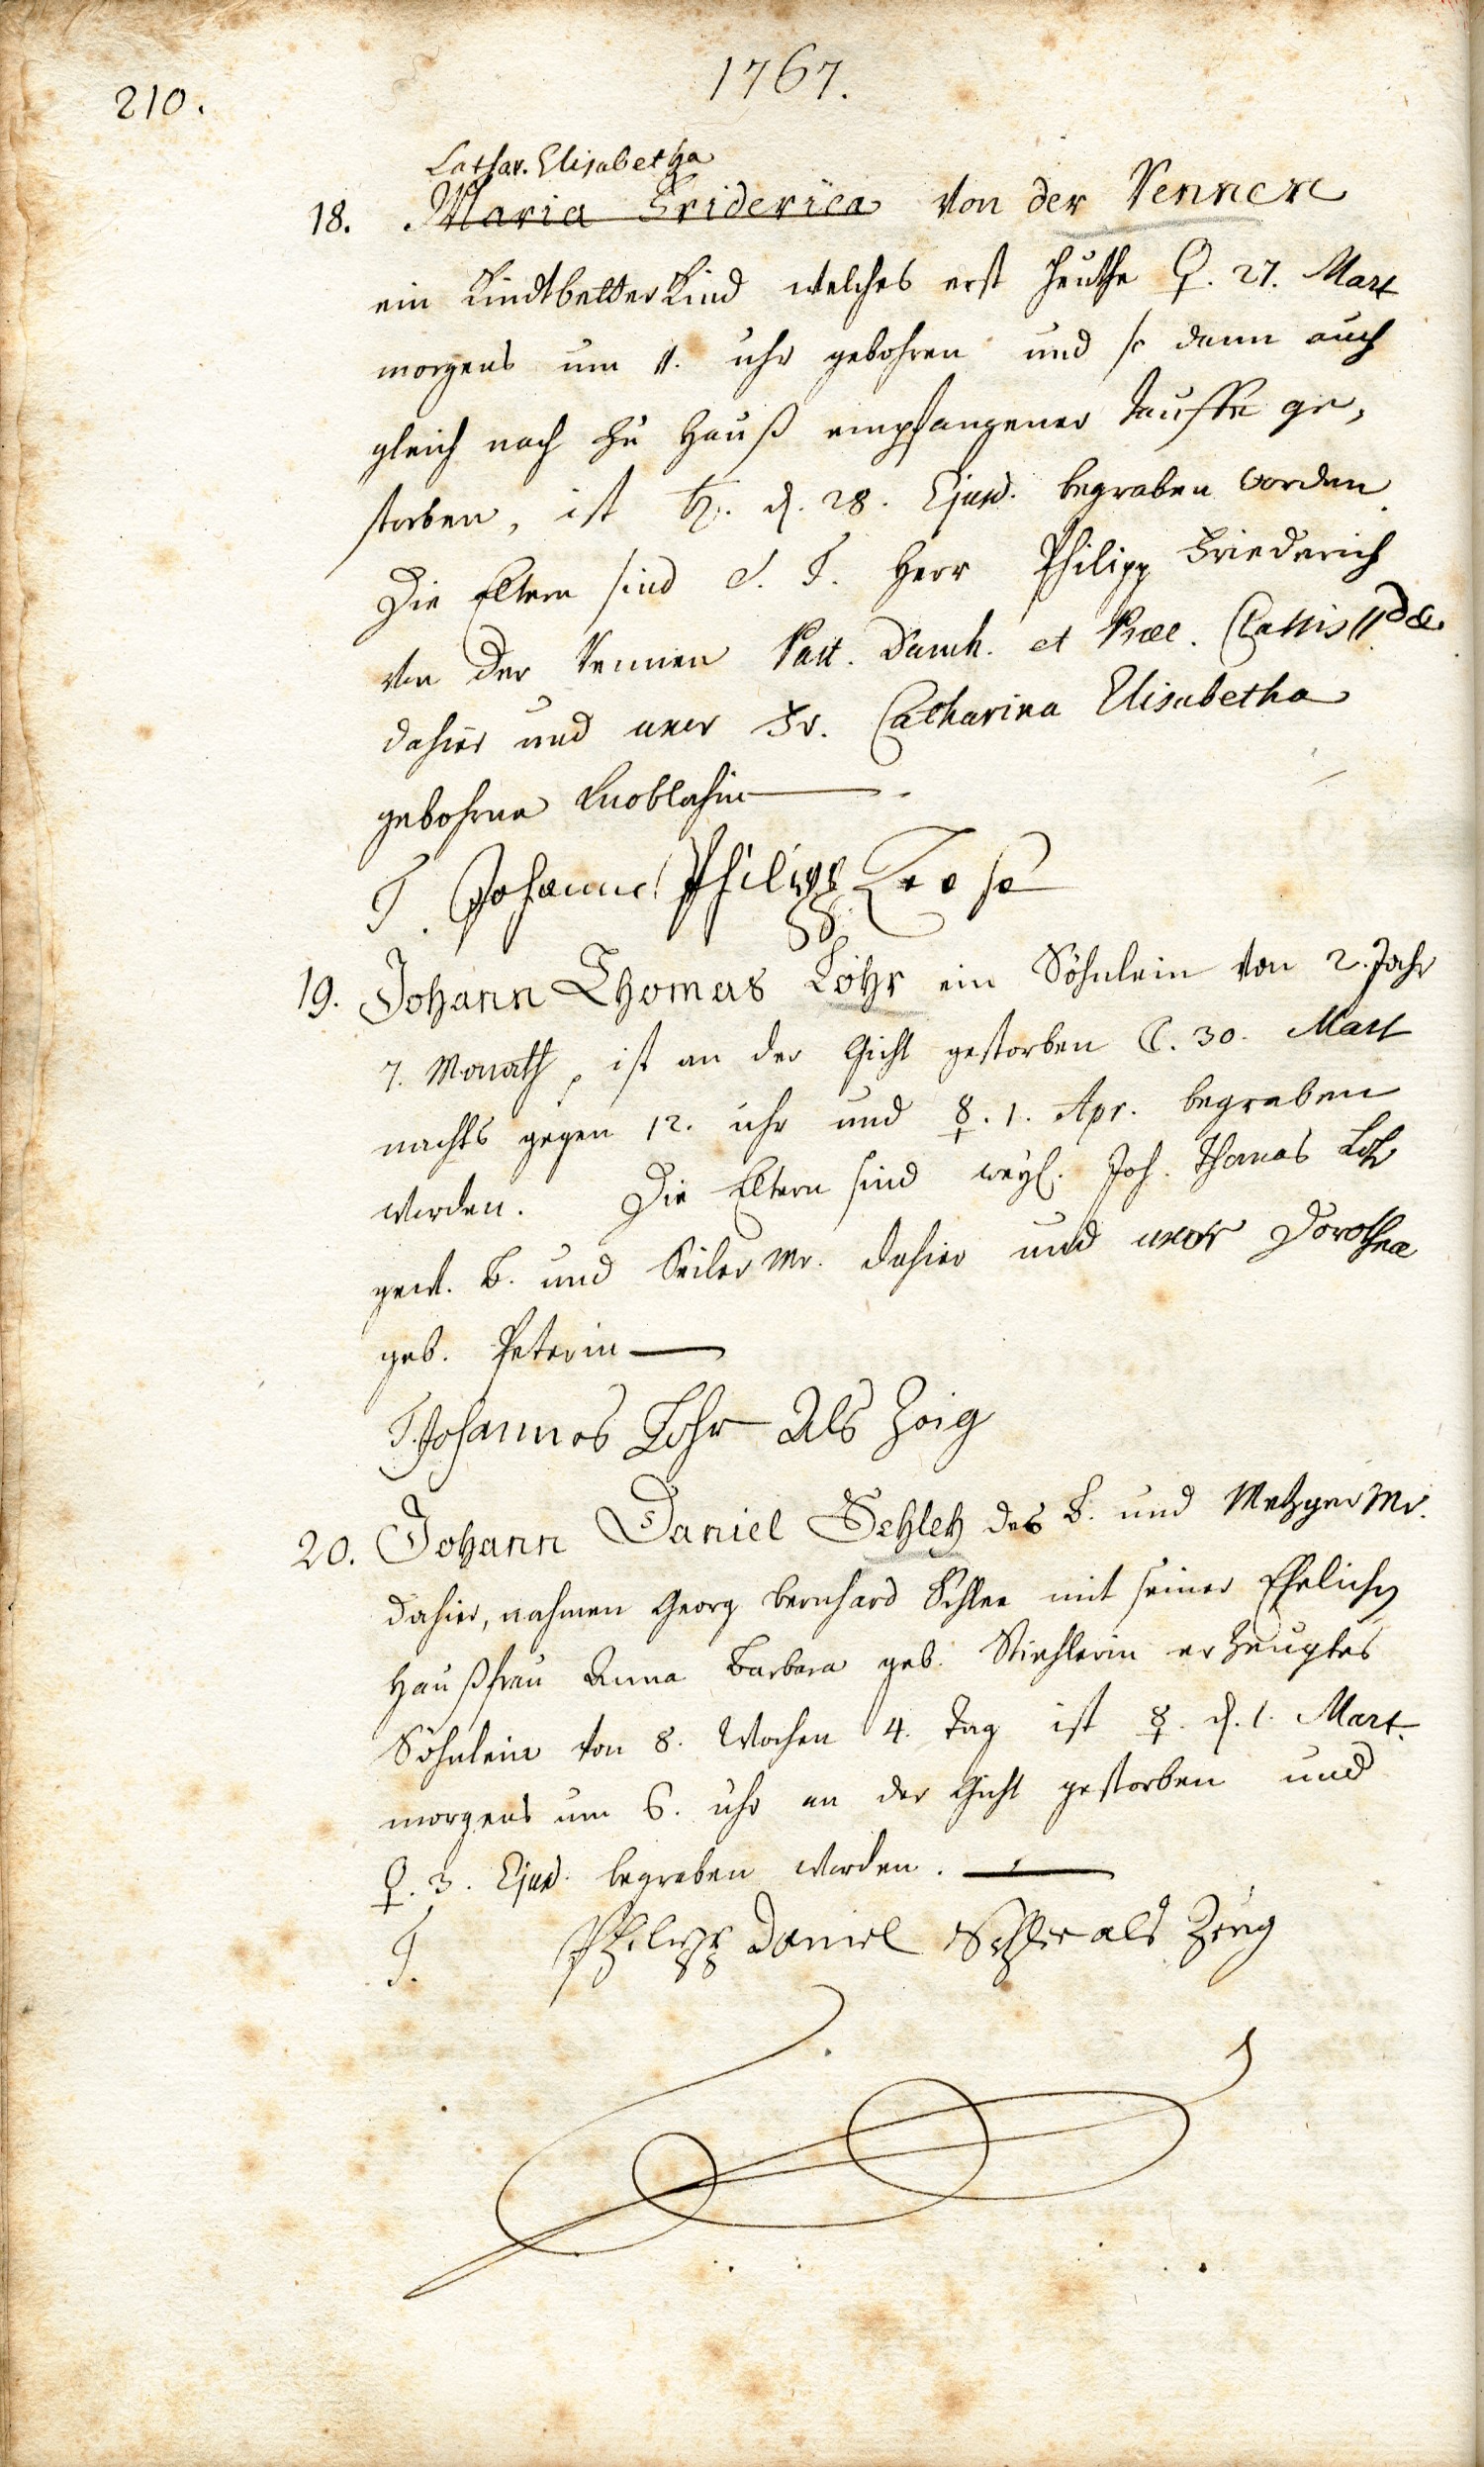 210.
1767.
Cathar. Elisabetha
18. Maria Friderica von der Vennen
ein Kindtbetter Kind welches erst heuthe ♀. 27. Mart
morgens um 11. uhr gebohren und so dann auch
gleich nach zu Hauß empfangener Tauffe ge-
storben, ist ♄. d. 28. Ejusd. begraben worden.
Die Eltern sind S. T. Herr Philipp Friederich
von der Vennen Past. et Præc. Classis IIdæ.
dahier und uxor Fr. Catharina Elisabetha
gebohrne Knoblochin
T. Johanne Philipp
19. Johann Thomas Löhr ein Söhnlein von 2. Jahr
7. Monath, ist an der Gicht gestorben ☾. 30. Mart
nachts gegen 12. uhr und ☿. 1. Apr. begraben
worden. Die Eltern sind weyl. Joh. Thomas Löhr
gew. B. und Seiler Mr. dahier und uxor Dorothea
geb. Peterin
T. Johannes Löhr Als Zeig
20. Johann Daniel Schleh des B. und Metzger Mr.
dahier, nahmen Georg bernhard Schlee mit seiner Ehelichen
Haußfrau Anna Barbara geb. Stiehlerin erzeugtes
Söhnlein von 8. Wochen 4. Tag ist ☿. d. 1. Mart.
morgens um 6. uhr an der Gicht gestorben und
♀. 3. Ejusd. begraben worden.
T. Philipp Daniel Schlee als Zeug